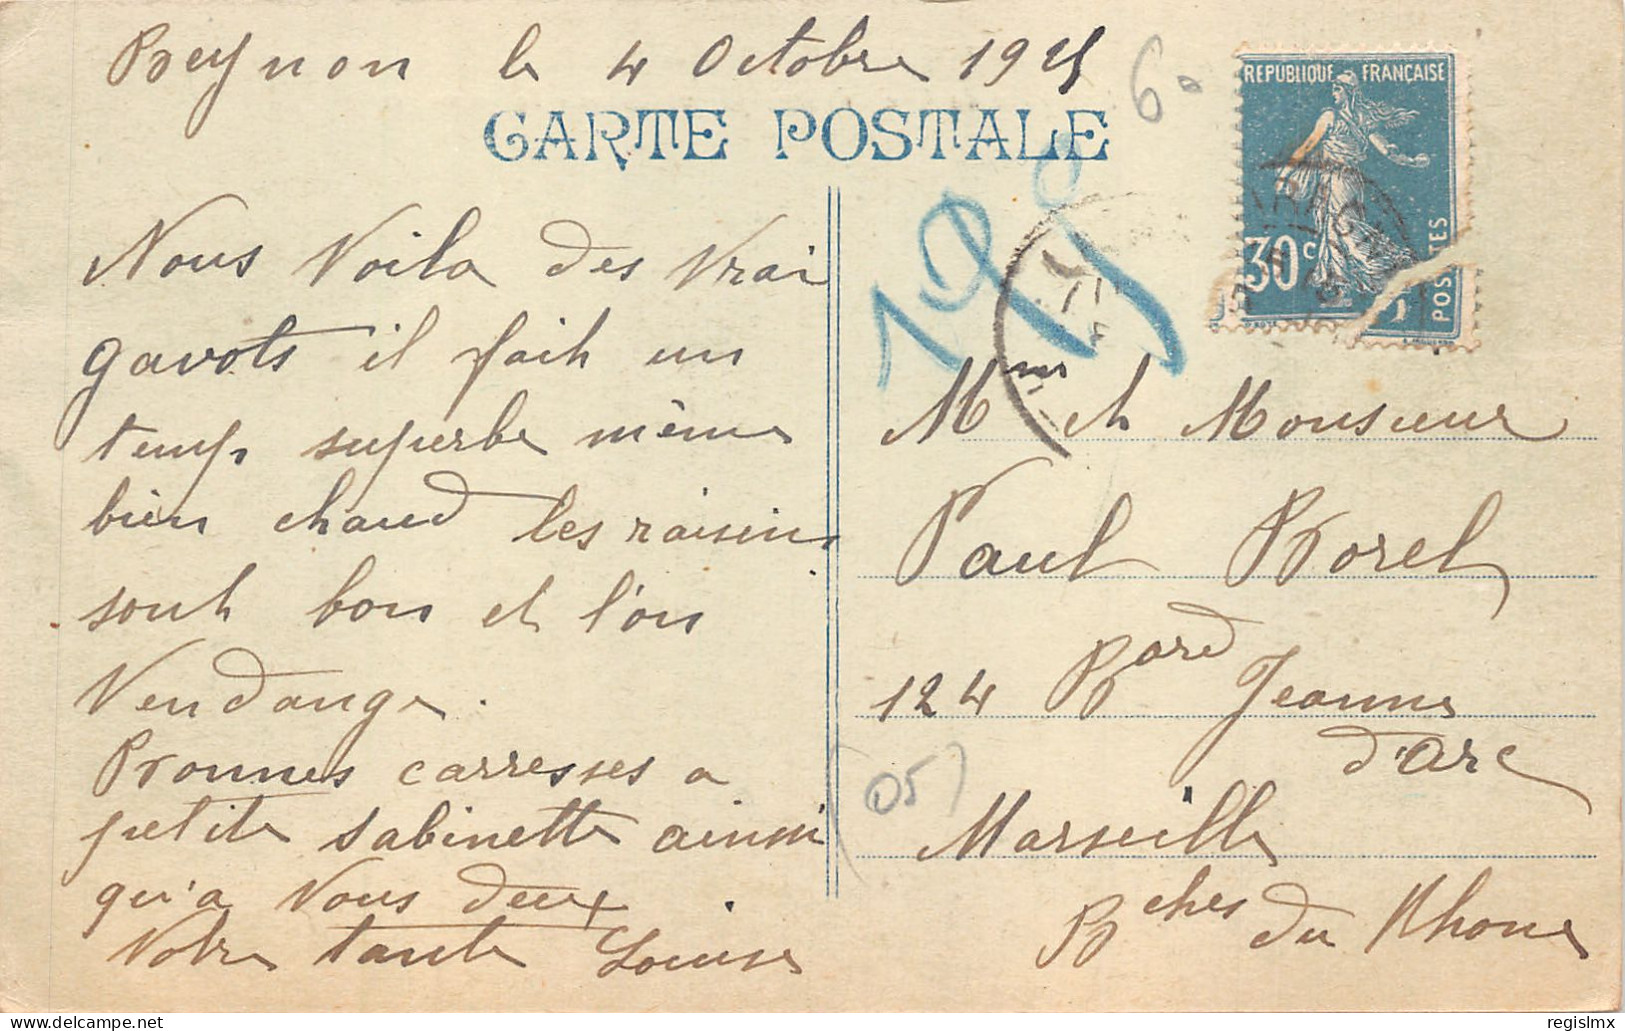 Beynon le 4 Octobre 1925
CARTE POSTALE
60
REPUBLIQUE FRANÇAISE
30c
POSTES
Nous Voila des Vrai
gavots il fait un
temps superbe même
bien chaud les raisins
sont bon et l'on
Vendange.
Bonnes carresses a
petite Sabinette ainsi
qu'a Vous deux
Votre tante Louise
Mme et Monsieur
Paul Borel
124 Bard Jeanne
d'Arc
(05)
Marseille
Bches du Rhone
regislmx